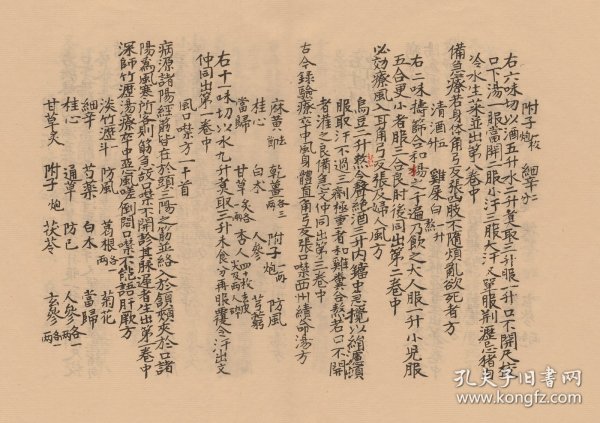 附子一枚炮 細辛一分
右六味切以酒五升水二升煑取三升服一升口不開尺
口下湯一服當開二服小汗三服大汗又單服荊瀝忌猪肉
冷水生菜並出第八卷中
備急療若身体角弓反張四肢不隨煩亂欲死者方
清酒 雞屎白一升熬
右二味擣篩合和揚之千遍乃飲之大人服一升小児服
五合更小者服三合良肘後同出第二卷中
必効療風入耳角弓反張及婦人風方
烏豆二升熬令聲絶酒三升内鐺中急攪以絹濾頓
服取汗不過三劑極重者和雞糞合熬若口不開
者灌之良備急必仲同出第三卷中
古今録驗療卒中風身體直角弓反張口噤西州續命湯方
麻黄 乾薑各三兩 附子一兩炮 防風
桂心 白朮 人參 芎藭
當歸 甘草 杏人
右十一味切以水九升煑取三升未食分再服覆令汗出文
仲同出第一卷中
風口噤方一十首
病源諸陽經筋皆在於頭三陽之筋並絡入於頷頰夾於口諸
陽爲風寒所客則筋急故口噤不開診其脉遲者生出第一卷中
深師竹瀝湯療卒中惡風噫倒悶口噤不能語肝厥方
淡竹瀝一斗 防風 葛根各二兩 菊花
細辛 芍藥 白朮 當歸
桂心 通草 防已 人參各一兩
甘草炙 附子炮 茯苓 玄參各一兩
孔夫子旧书网
www.kongfz.com